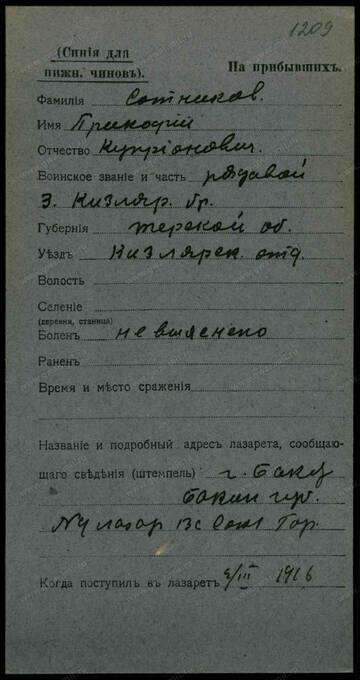 1209
(Синія для
нижн. чиновъ).
На прибывшихъ.
Фамилія Сотников.
Имя Прикофій
Отчество Купріонович.
Воинское званіе и часть рядавой
3. Кизляр. бр.
Губернія терской об.
Уѣздъ Кизлярск. отд.
Волость
Селеніе
(деревня, станица)
Боленъ не выяснено
Раненъ
Время и мѣсто сраженія
Названіе и подробный адресъ лазарета, сообщаю-
щаго свѣдѣнія (штемпель) г. Баку
Бакин губ.
№4 лазар Вс Союз Гор.
Когда поступилъ въ лазаретъ /III 1916